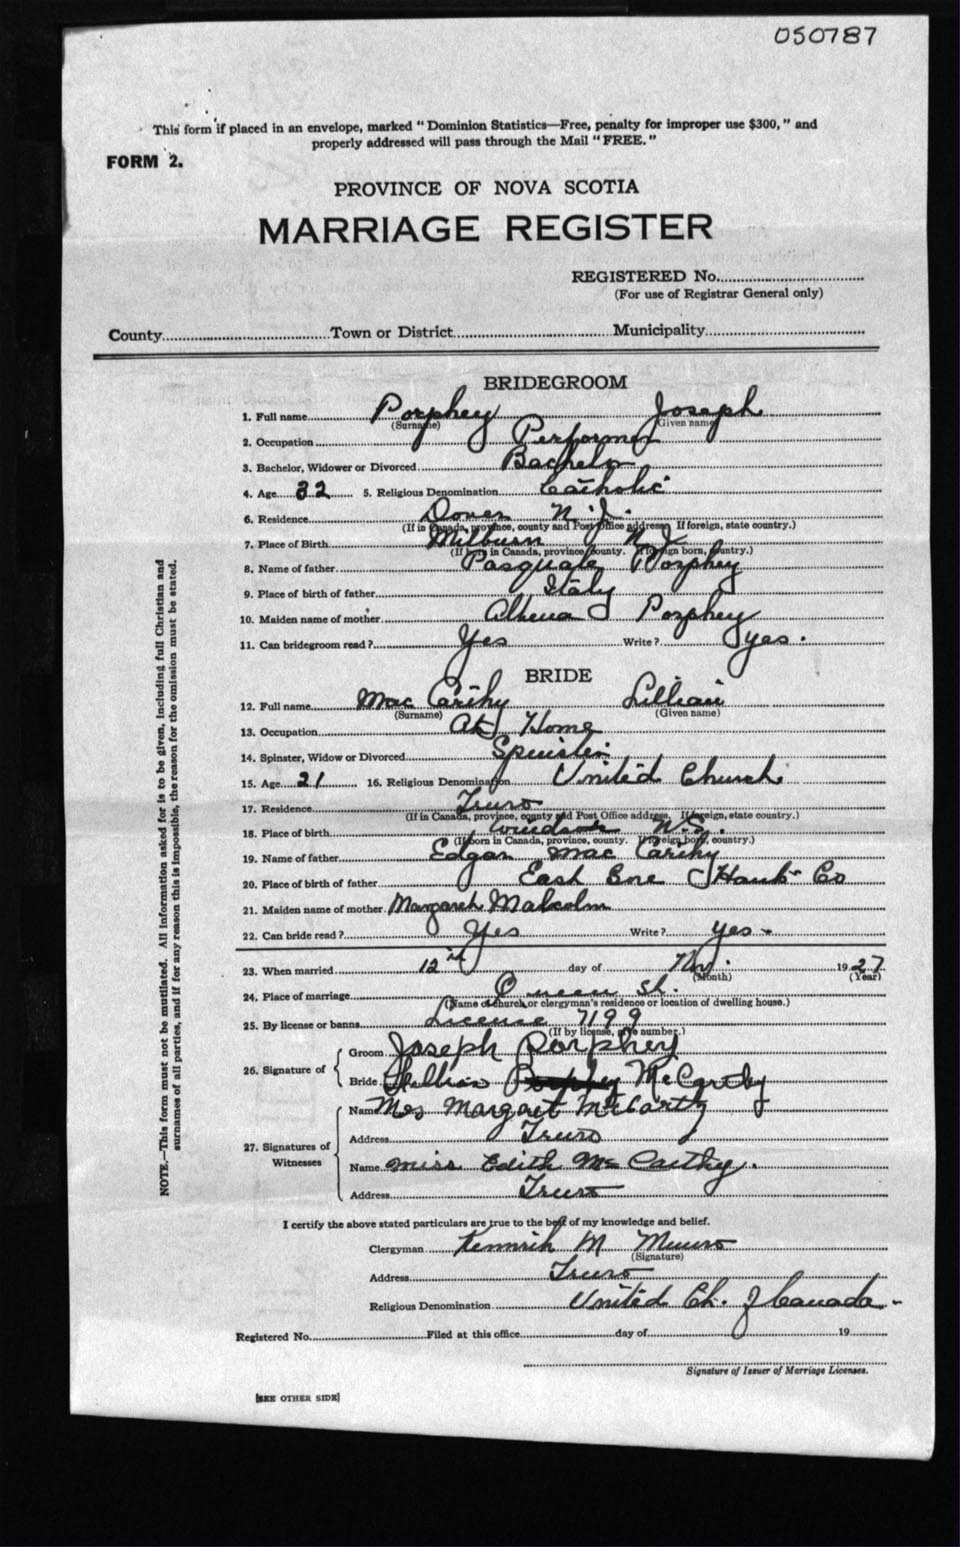 050787
This form if placed in an envelope, marked "Dominion Statistics—Free, penalty for improper use $300," and
properly addressed will pass through the Mail "FREE."
FORM 2.
PROVINCE OF NOVA SCOTIA
MARRIAGE REGISTER
REGISTERED No.
(For use of Registrar General only)
County Town or District Municipality
BRIDEGROOM
1. Full name Porphey Joseph
(Surname) (Given name)
2. Occupation Performer
3. Bachelor, Widower or Divorced Bachelor
4. Age 32 5. Religious Denomination Catholic
6. Residence Dover N.J.
(If in Canada, province, county and Post Office address. If foreign, state country.)
7. Place of Birth Milburn N J
(If born in Canada, province/county. If foreign born, country.)
8. Name of father Pasquale Porphey
9. Place of birth of father Italy
10. Maiden name of mother Porphey
11. Can bridegroom read? Yes Write? yes.
BRIDE
12. Full name Mac Carthy Lillian
(Surname) (Given name)
13. Occupation At Home
14. Spinster, Widow or Divorced Spinster
15. Age 21 16. Religious Denomination United Church
17. Residence Truro
(If in Canada, province, county and Post Office address. If foreign, state country.)
18. Place of birth Windsor N.S.
(If born in Canada, province, county. If foreign born, country.)
19. Name of father Edgar Mac Carthy
20. Place of birth of father East Hants Co
21. Maiden name of mother Margaret Malcolm
22. Can bride read? Yes Write? yes
23. When married 12th day of Nov. 1927
(Month) (Year)
24. Place of marriage Queen St.
(Name of church or clergyman's residence or location of dwelling house.)
25. By license or banns License 7199
(If by license, give number.)
26. Signature of
Groom Joseph Porphey
Bride Lillian McCarthy
27. Signatures of Witnesses
Name Mrs Margaret McCarthy
Address Truro
Name Miss Edith McCarthy.
Address Truro
I certify the above stated particulars are true to the best of my knowledge and belief.
Clergyman M Munro
(Signature)
Address Truro
Religious Denomination United Ch. of Canada
Registered No. Filed at this office day of 19
Signature of Issuer of Marriage Licenses.
[SEE OTHER SIDE]
NOTE.—This form must not be mutilated. All information asked for is to be given, including full Christian and
surnames of all parties, and if for any reason this is impossible, the reason for the omission must be stated.